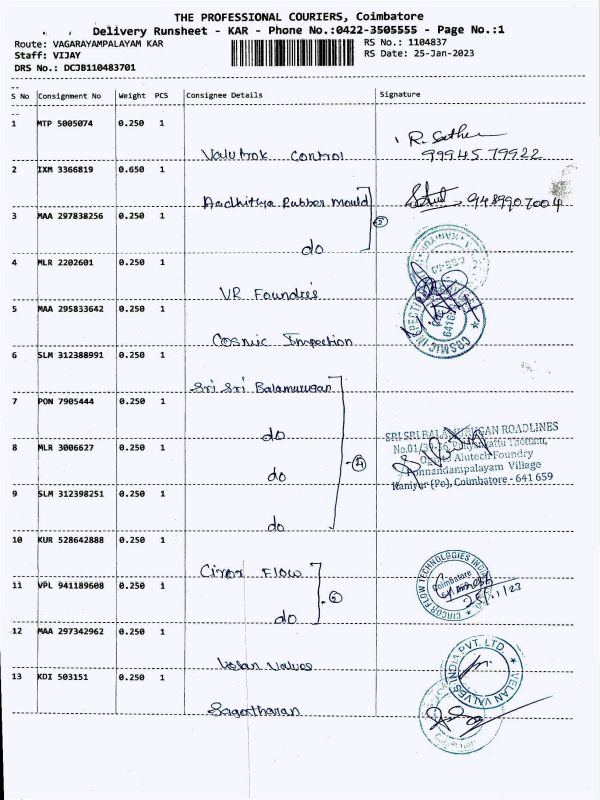 THE PROFESSIONAL COURIERS, Coimbatore
Delivery Runsheet - KAR - Phone No.:0422-3505555 - Page No.:1
Route: VAGARAYAMPALAYAM KAR
RS No.: 1104837
Staff: VIJAY
RS Date: 25-Jan-2023
DRS No.: DCJB110483701
S No Consignment No Weight PCS Consignee Details Signature
1 MTP 5005074 0.250 1
R. Sathe
Valutrok Control 99945 79922
2 IXM 3366819 0.650 1
Aadhithya Rubber Mould 9489907004
3 MAA 297838256 0.250 1
②
do
4 MLR 2202601 0.250 1
VR Foundres
5 MAA 295833642 0.250 1
Cosmic Inspection
COSMIC INSPECTION
6 SLM 312388991 0.250 1
Sri Sri Balamurugan
7 PON 7905444 0.250 1
do
SRI SRI BALAMURUGAN ROADLINES
8 MLR 3006627 0.250 1
④
Alutech Foundry
do
Ponnandampalayam Village
Kaniyur (Po), Coimbatore - 641 659
9 SLM 312398251 0.250 1
do
10 KUR 528642888 0.250 1
Ciror Flow
CIRCOR FLOW TECHNOLOGIES INDIA
Coimbatore
11 VPL 941189608 0.250 1
25/1/23
do
12 MAA 297342962 0.250 1
Velan Valves
VELAN VALVES INDIA PVT. LTD
13 KDI 503151 0.250 1
Sagartharan